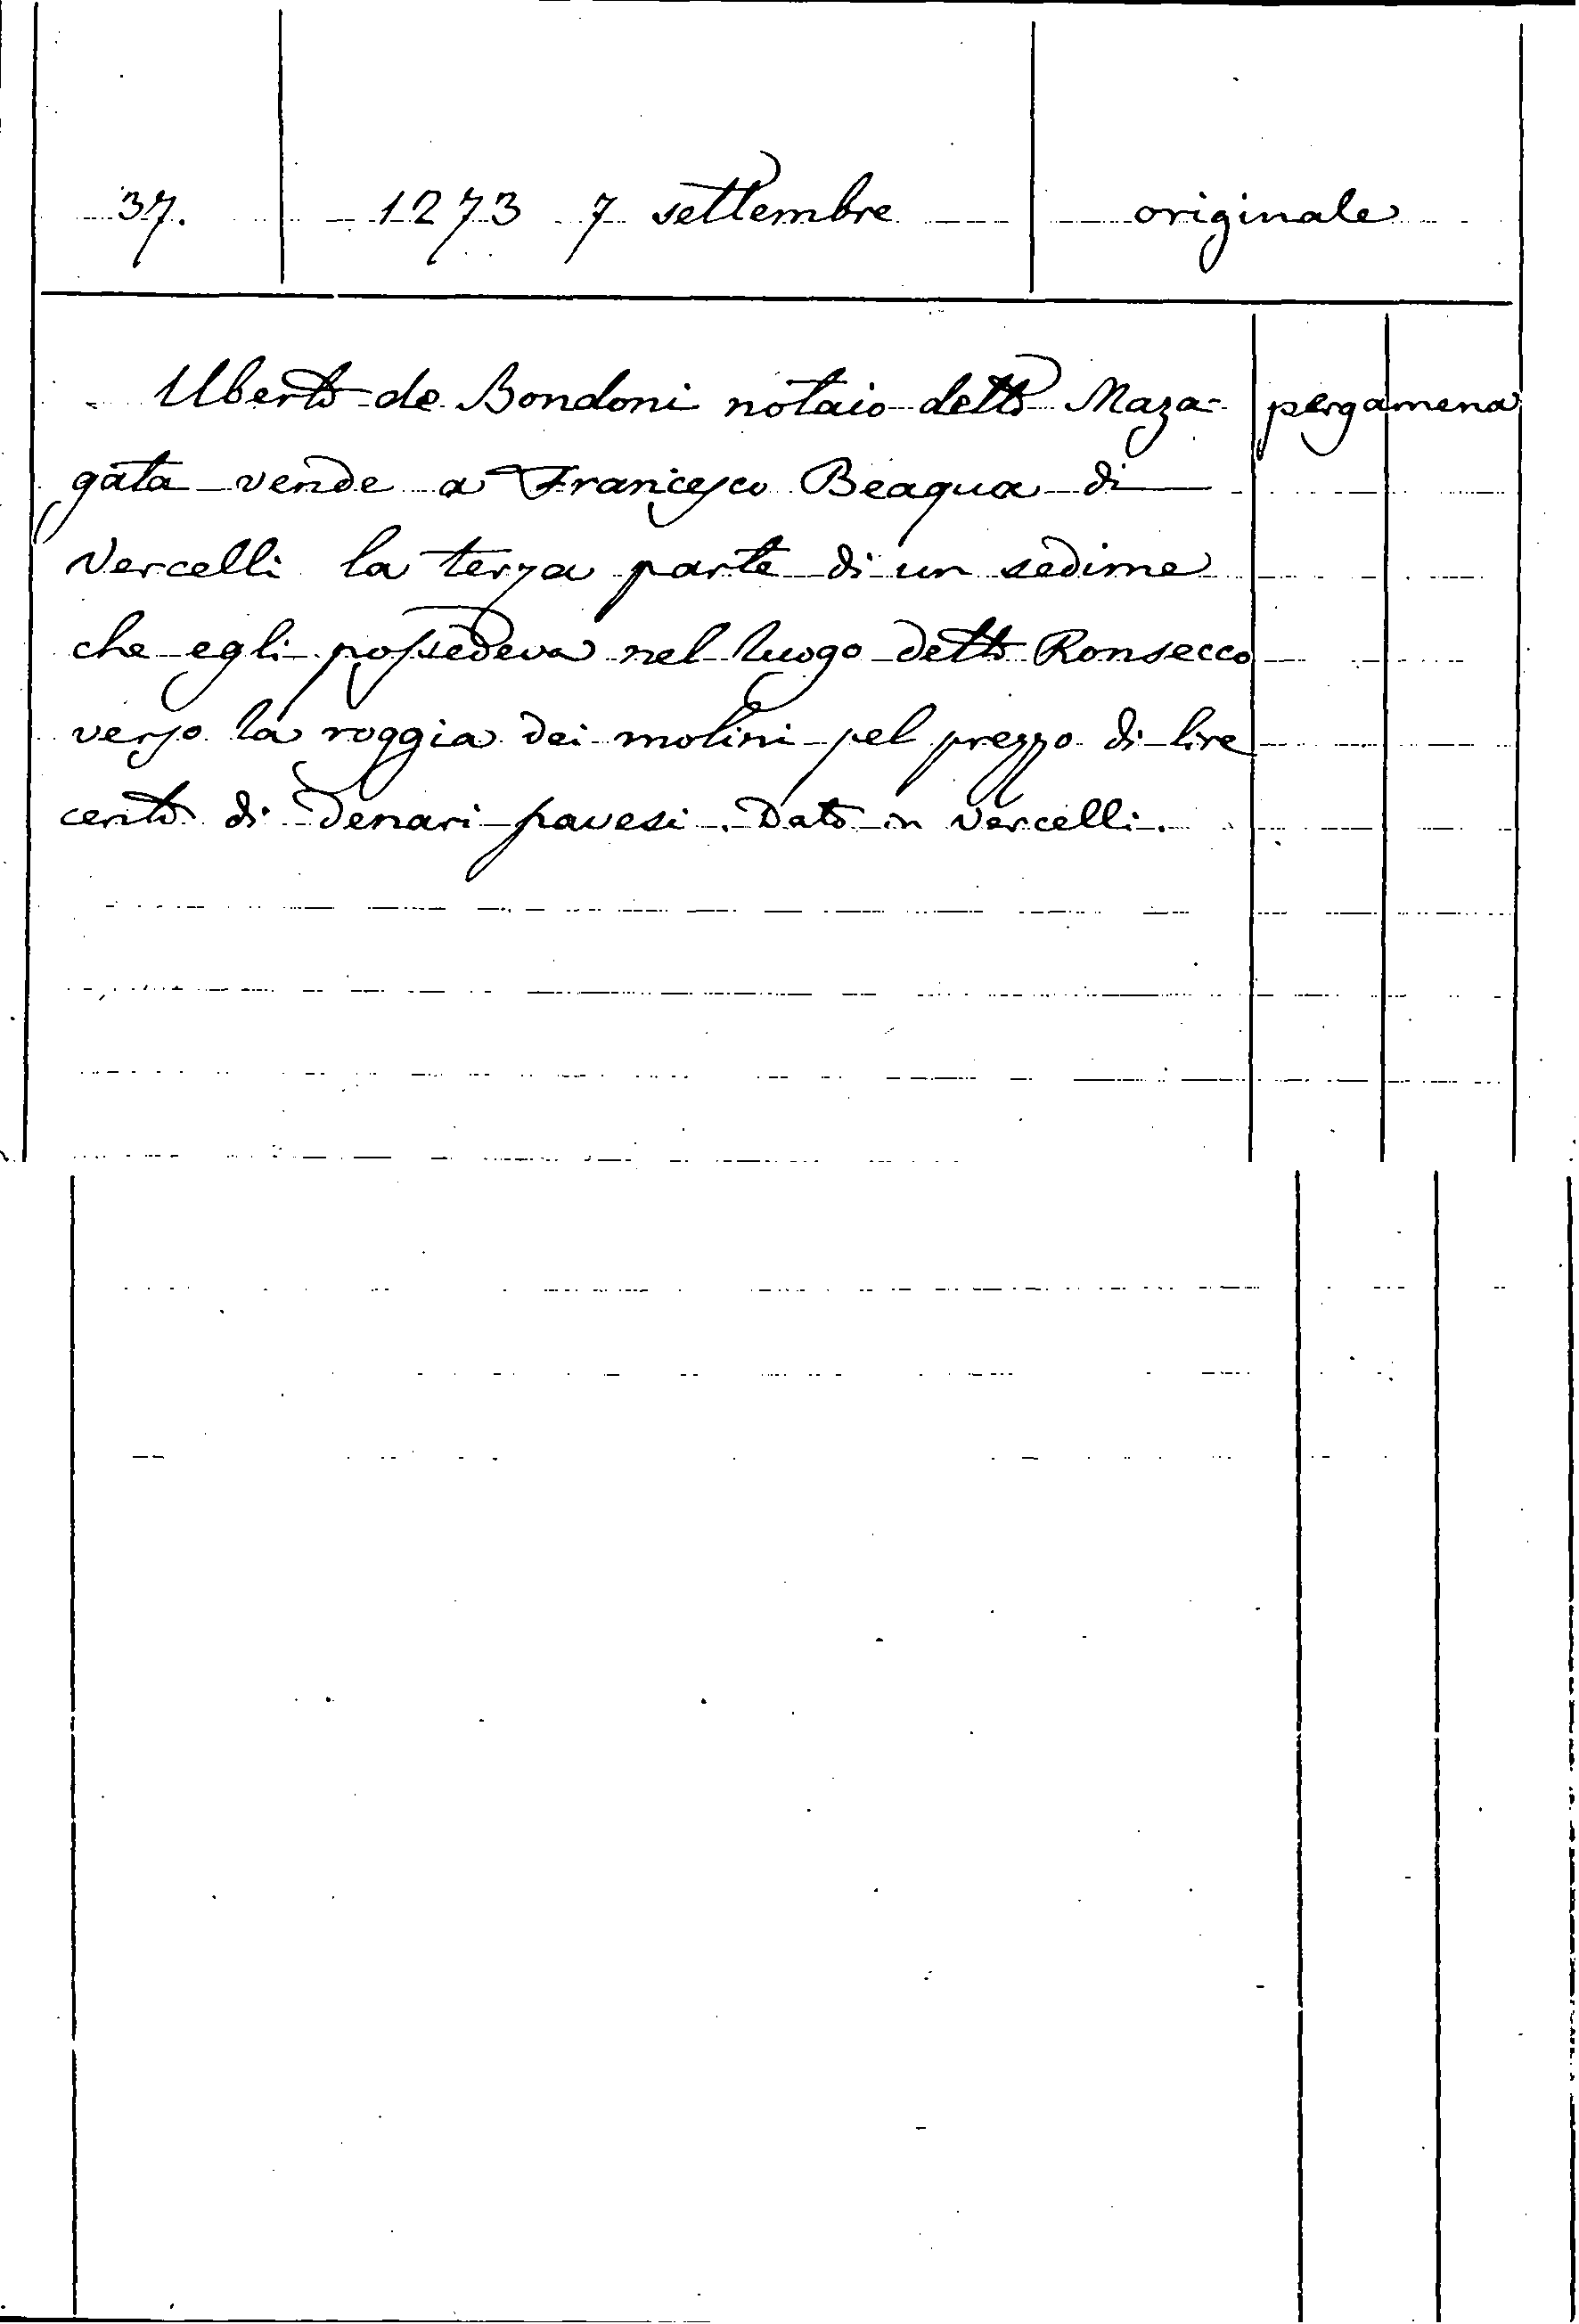 37. 1273 7 settembre originale
Uberto de Bondoni notaio detto Maza- pergamena
gata vende a Francesco Beaqua di
Vercelli la terza parte di un sedime
che egli possedeva nel luogo detto Ronsecco
verso la roggia dei molini pel prezzo di lire
cento di denari pavesi. Dato in Vercelli.